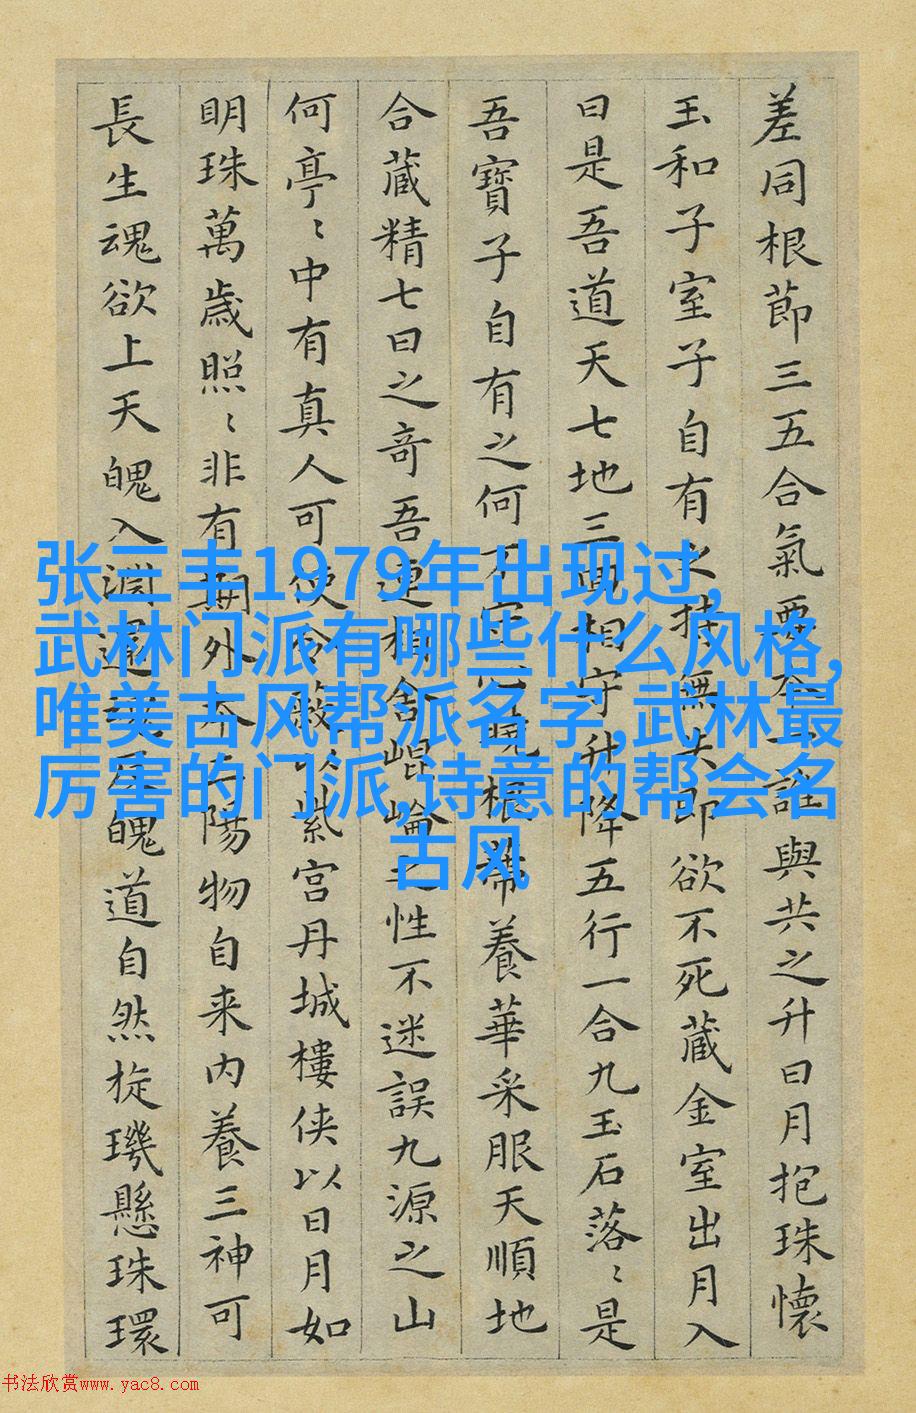 差同根節三五合氣要本一誰與共之升日月抱珠懷
玉和子室子自有之持無失即欲不死蔵金室出月入
日是吾道天七地三回相守升降五行一合九玉石落〻是
吾寶子自有之何不守心曉根蒂養華采服天順地
合蔵精七日之奇吾連相舍崐崘之性不迷誤九源之山
何亭〻中有真人可使令蔽以紫宮丹城樓侠以日月如
明珠萬歳照〻非有期外本三陽物自来内養三神可
長生魂欲上天魄入淵還魂反魄道自然旋璣懸珠環
张三丰1979年出现过,
武林门派有哪些什么风格,
唯美古风帮派名字,武林最
厉害的门派,诗意的帮会名
古风
书法欣赏www.yac8.com